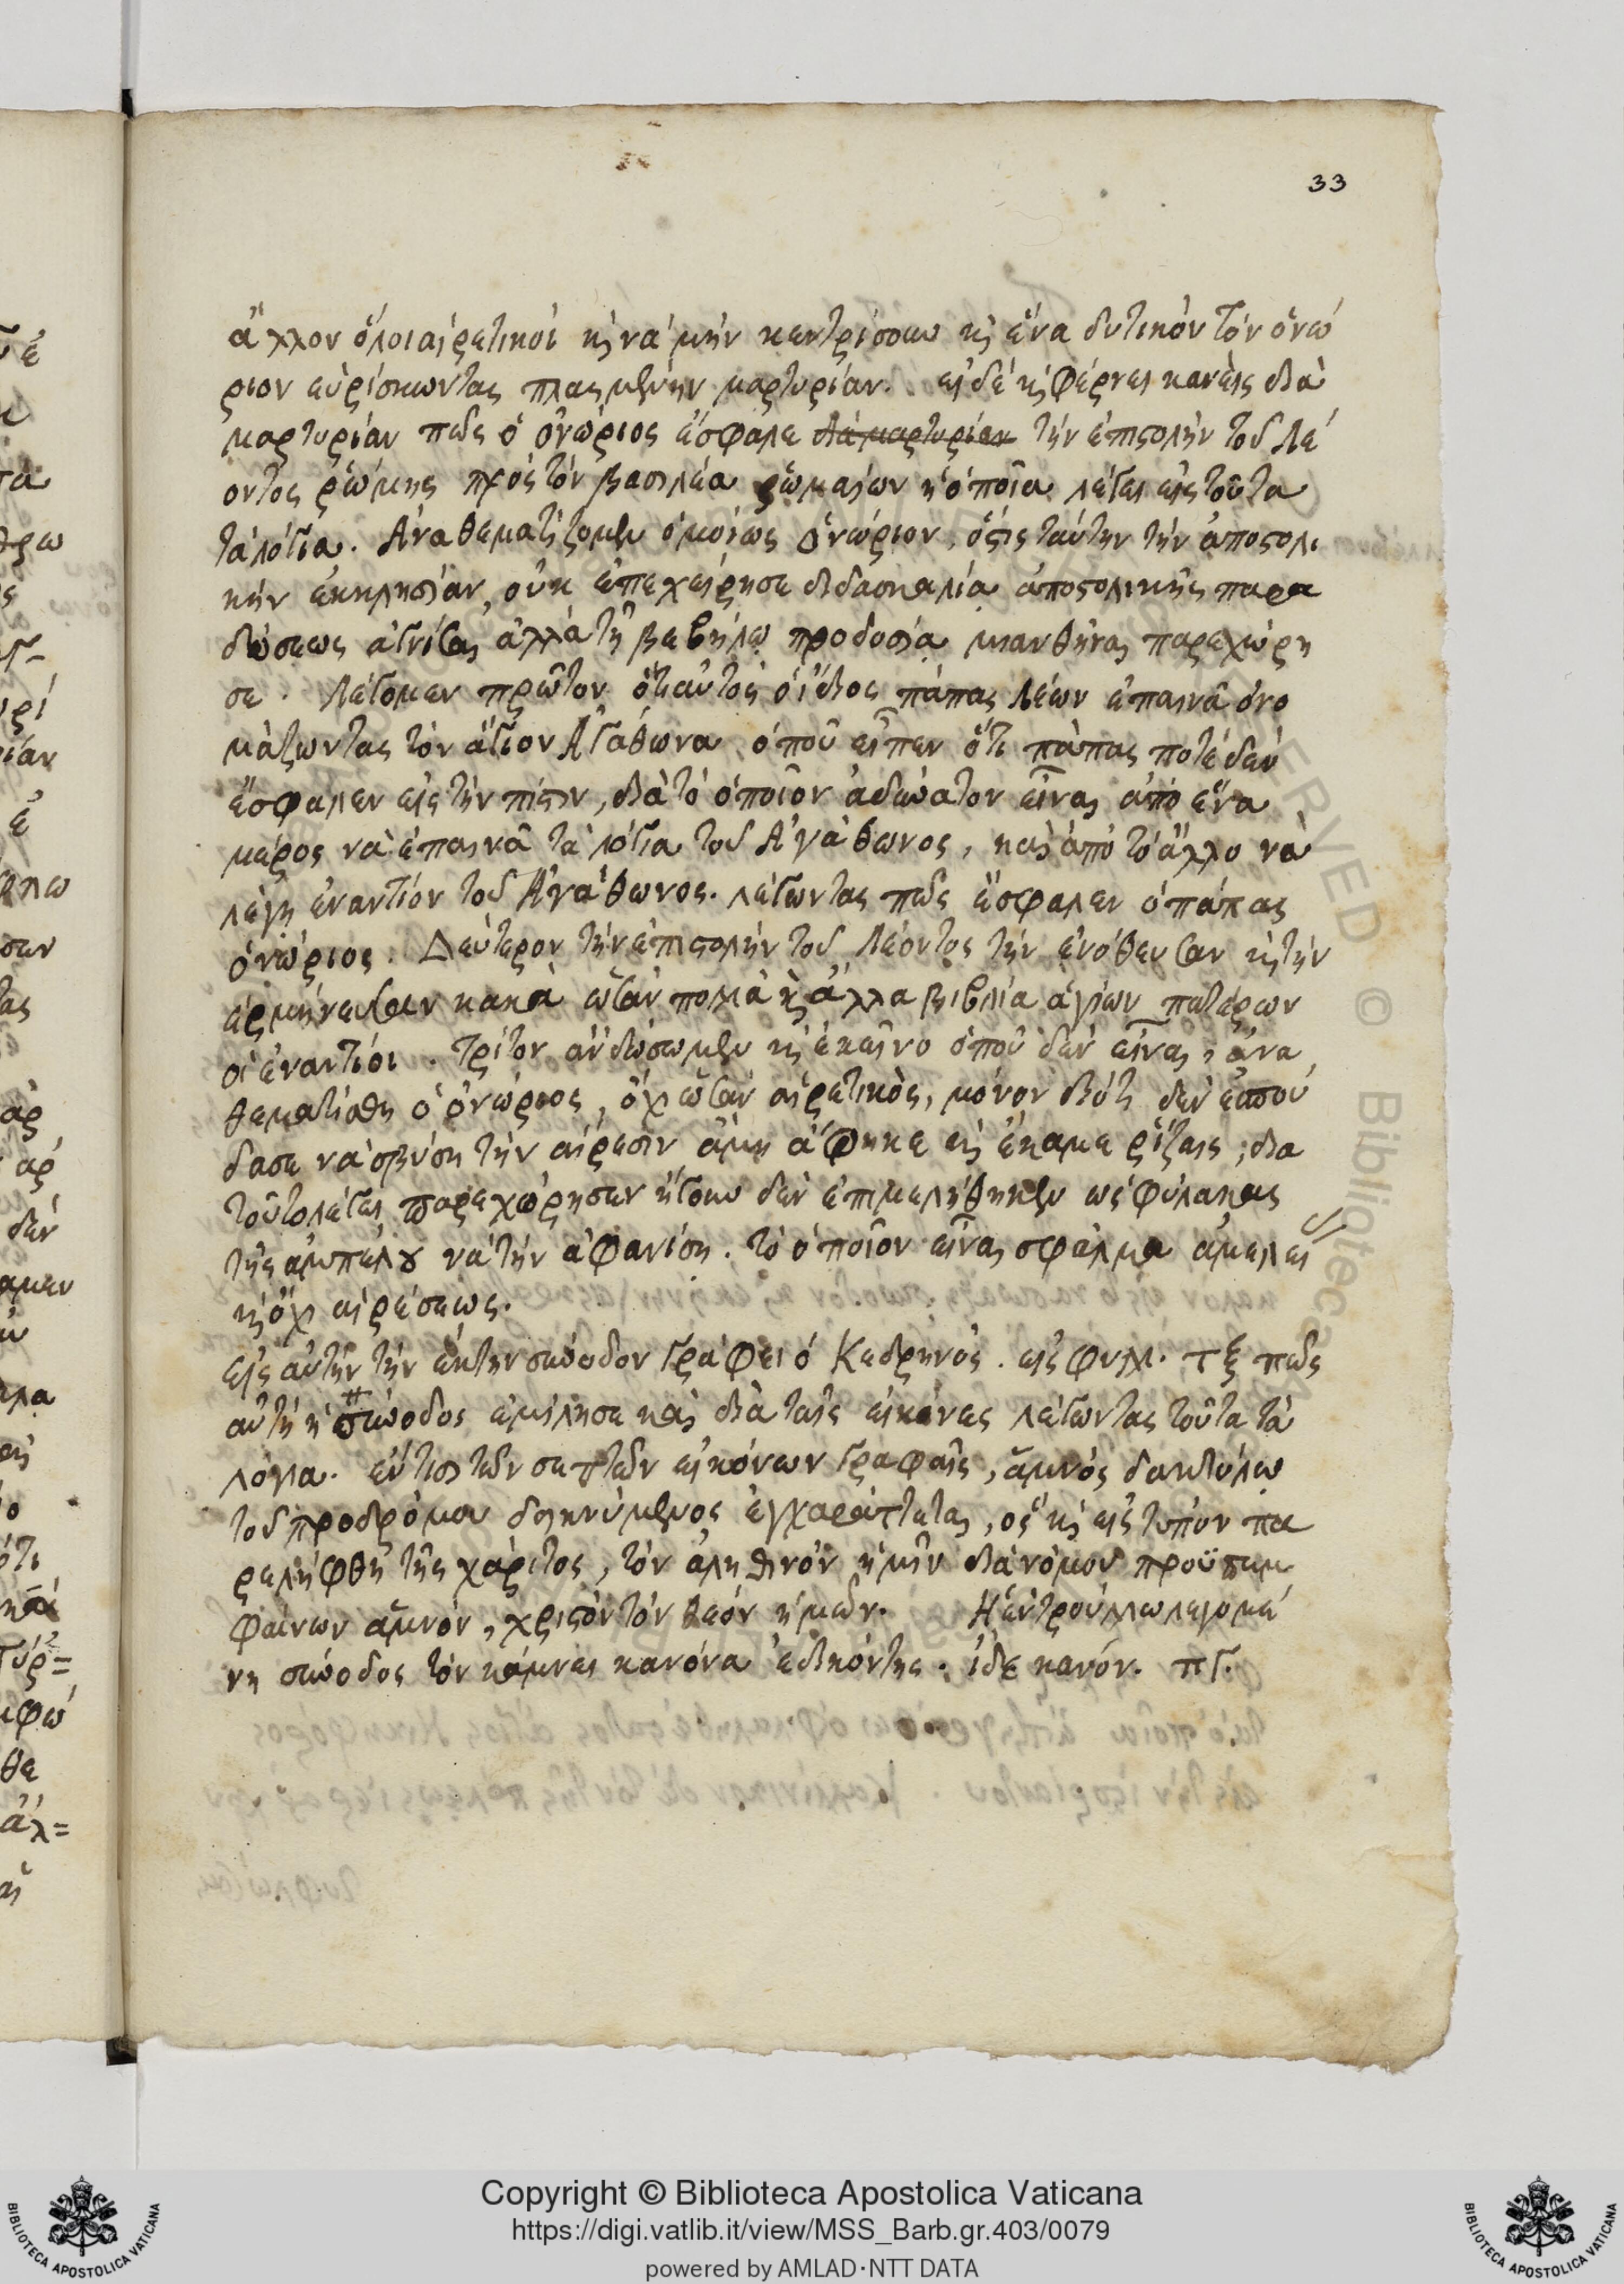 33
ἄλλον ὅλοι αἱρετικοί κ νά μήν κεντρίσουν κ ἕνα δυτικόν τόν ὀνώ
ριον εὑρίσκωντας πλασμένην μαρτυρίαν. εἰ δέ κ φέρνει κανείς διὰ
μαρτυρίαν πῶς ὁ ὀνώριος ἔσφαλε διά μαρτυρίαν τήν ἐπιστολήν τοῦ λέ
οντος ῥώμης πρός τόν βασιλέα ῥωμαίων ἡ ὁποῖα λέγει εἰς τοῦτα
τά λόγια. Ἀναθεματίζομεν ὁμοίως Ὁνώριον, ὅστις ταύτην τήν ἀποστολι
κήν ἐκκλησίαν, οὐκ ἐπεχείρησε διδασκαλία ἀποστολικῆς παρα
δώσεως ἁγνίσαι ἀλλά τῇ βεβήλῳ προδοσίᾳ μιανθῆναι παρεχώρη
σε. Λέγομεν πρῶτον ὅτι αὐτός ὁ ἴδιος πάπας λέων ἐπαινᾶ ὀνο
μάζωντας τόν ἅγιον Ἀγάθωνα ὁποῦ εἶπεν ὅτι πάπας ποτέ δέν
ἔσφαλεν εἰς τήν πίστιν, διά τό ὁποῖον ἀδύνατον εἶναι ἀπό ἕνα
μέρος νὰ ἐπαινᾶ τὰ λόγια τοῦ Ἀγάθωνος, καὶ ἀπό τό ἄλλο νὰ
λέγη ἐναντίον τοῦ Ἀγάθωνος. λέγωντας πῶς ἔσφαλεν ὁ πάπας
ὀνώριος. Δεύτερον τήν ἐπιστολήν τοῦ λέοντος τήν ἐνόθευσαν κ τήν
ἑρμήνευσαν κακὰ ὡσάν πολλά κ ἄλλα βιβλία ἁγίων πατέρων
οἱ ἐναντίοι. τρίτον ἄν δώσωμεν κ ἐκεῖνο ὁποῦ δέν εἶναι, ἀνα
θεματίσθη ὁ ὀνώριος, ὄχι ὡσάν αἱρετικὸς, μόνον διότι δέν ἐσπού
δασε νά σβύση τήν αἵρεσιν ἀμή ἄφηκε κ ἔκαμε ῥίζαις; δια
τοῦτο λέγει παρεχώρησεν ἤγουν δέν ἐπιμελήθηκεν ὡς φύλακας
τῆς ἀμπέλου νὰ τήν ἀφανίση. τὸ ὁποῖον εἶναι σφάλμα ἀμελεί
κ ὄχι αἱρέσεως.
εἰς αὐτήν τήν ἕκτην σύνοδον γράφει ὁ Κεδρηνός. εἰς φυλλ. τξ πῶς
αὐτή ἡ σύνοδος ἐμίλησε καὶ διὰ ταῖς εἰκόνες λέγωντας τοῦτα τά
λόγια. ἔν τισι τῶν σεπτῶν εἰκόνων γραφαῖς, ἀμνός δακτύλω
τοῦ προδρόμου δεικνύμενος ἐγχαράττεται, ὅς κ εἰς τύπον πα
ρελήφθη τῆς χάριτος, τόν ἀληθινόν ἡμῖν διά νόμου προϋπεμ
φαίνων ἀμνόν, χριστόν τόν θεόν ἡμῶν. Ἡ ἐν τρούλλω λεγομέ
νη σύνοδος τόν κάμνει κανόνα ἐδικόντης. ἰδέ κανόν. πΓ.
Copyright © Biblioteca Apostolica Vaticana
https://digi.vatlib.it/view/MSS_Barb.gr.403/0079
powered by AMLAD·NTT DATA